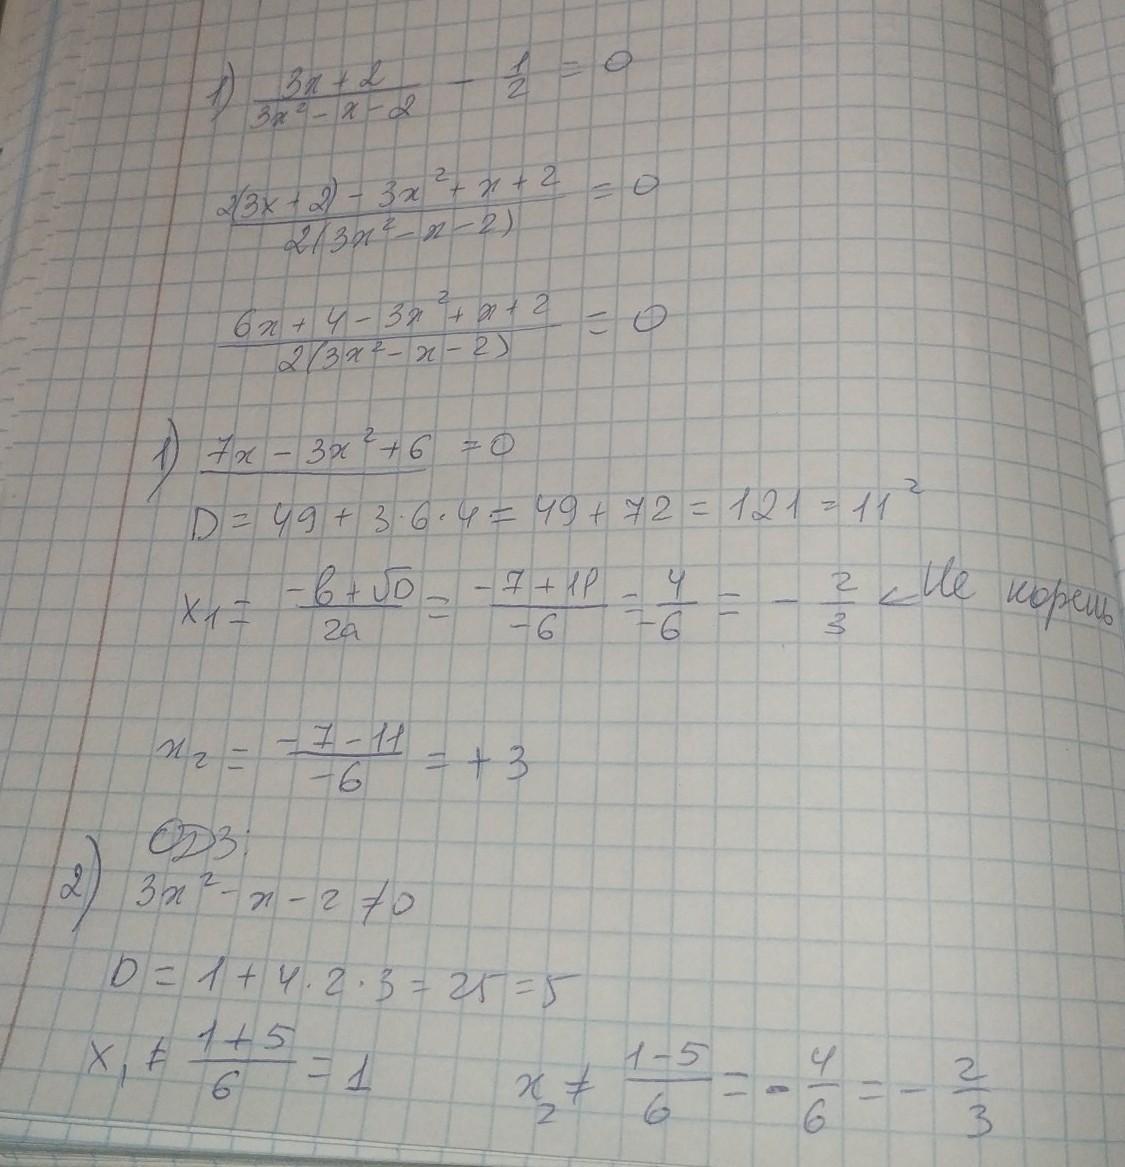 1) (3x + 2)/(3x² - x - 2) - 1/2 = 0
(2(3x + 2) - 3x² + x + 2)/(2(3x² - x - 2)) = 0
(6x + 4 - 3x² + x + 2)/(2(3x² - x - 2)) = 0
1) 7x - 3x² + 6 = 0
D = 49 + 3·6·4 = 49 + 72 = 121 = 11²
x₁ = (-b + √D)/(2a) = (-7 + 11)/(-6) = 4/(-6) = - 2/3 ← Не корень
x₂ = (-7 - 11)/(-6) = + 3
ОДЗ:
2) 3x² - x - 2 ≠ 0
D = 1 + 4·2·3 = 25 = 5
x₁ ≠ (1 + 5)/6 = 1 x₂ ≠ (1 - 5)/6 = - 4/6 = - 2/3